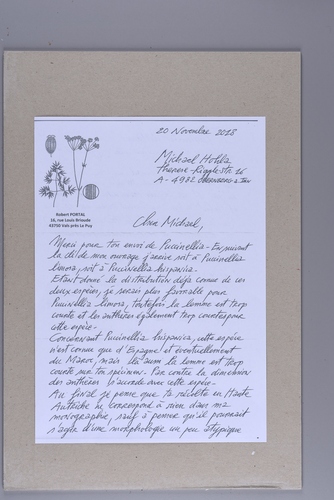 20 Novembre 2018
Michael Hohla
Therese-Riggle-Str. 16
A - 4982 OBERNBERG a. Inn
Robert PORTAL
16, rue Louis Brioude
43750 Vals près Le Puy
Cher Michael,
Merci pour ton envoi de Puccinellia. En suivant
la clé de mon ouvrage j'arrive soit à Puccinellia
limosa, soit à Puccinellia hispanica.
Etant donné la distribution déjà connue de ces
deux espèces, je serais plus favorable pour
Puccinellia limosa, toutefois la lemme est trop
courte et les anthères également trop courtes pour
cette espèce.
Concernant Puccinellia hispanica, cette espèce
n'est connue que d'Espagne et éventuellement
du Maroc, mais là aussi la lemme est trop
courte sur ton spécimen. Par contre la dimension
des anthères s'accorde avec cette espèce.
Au final je pense que ta récolte en Haute
Autriche ne correspond à rien dans ma
monographie, sauf à penser qu'il pourrait
s'agir d'une morphologie un peu atypique